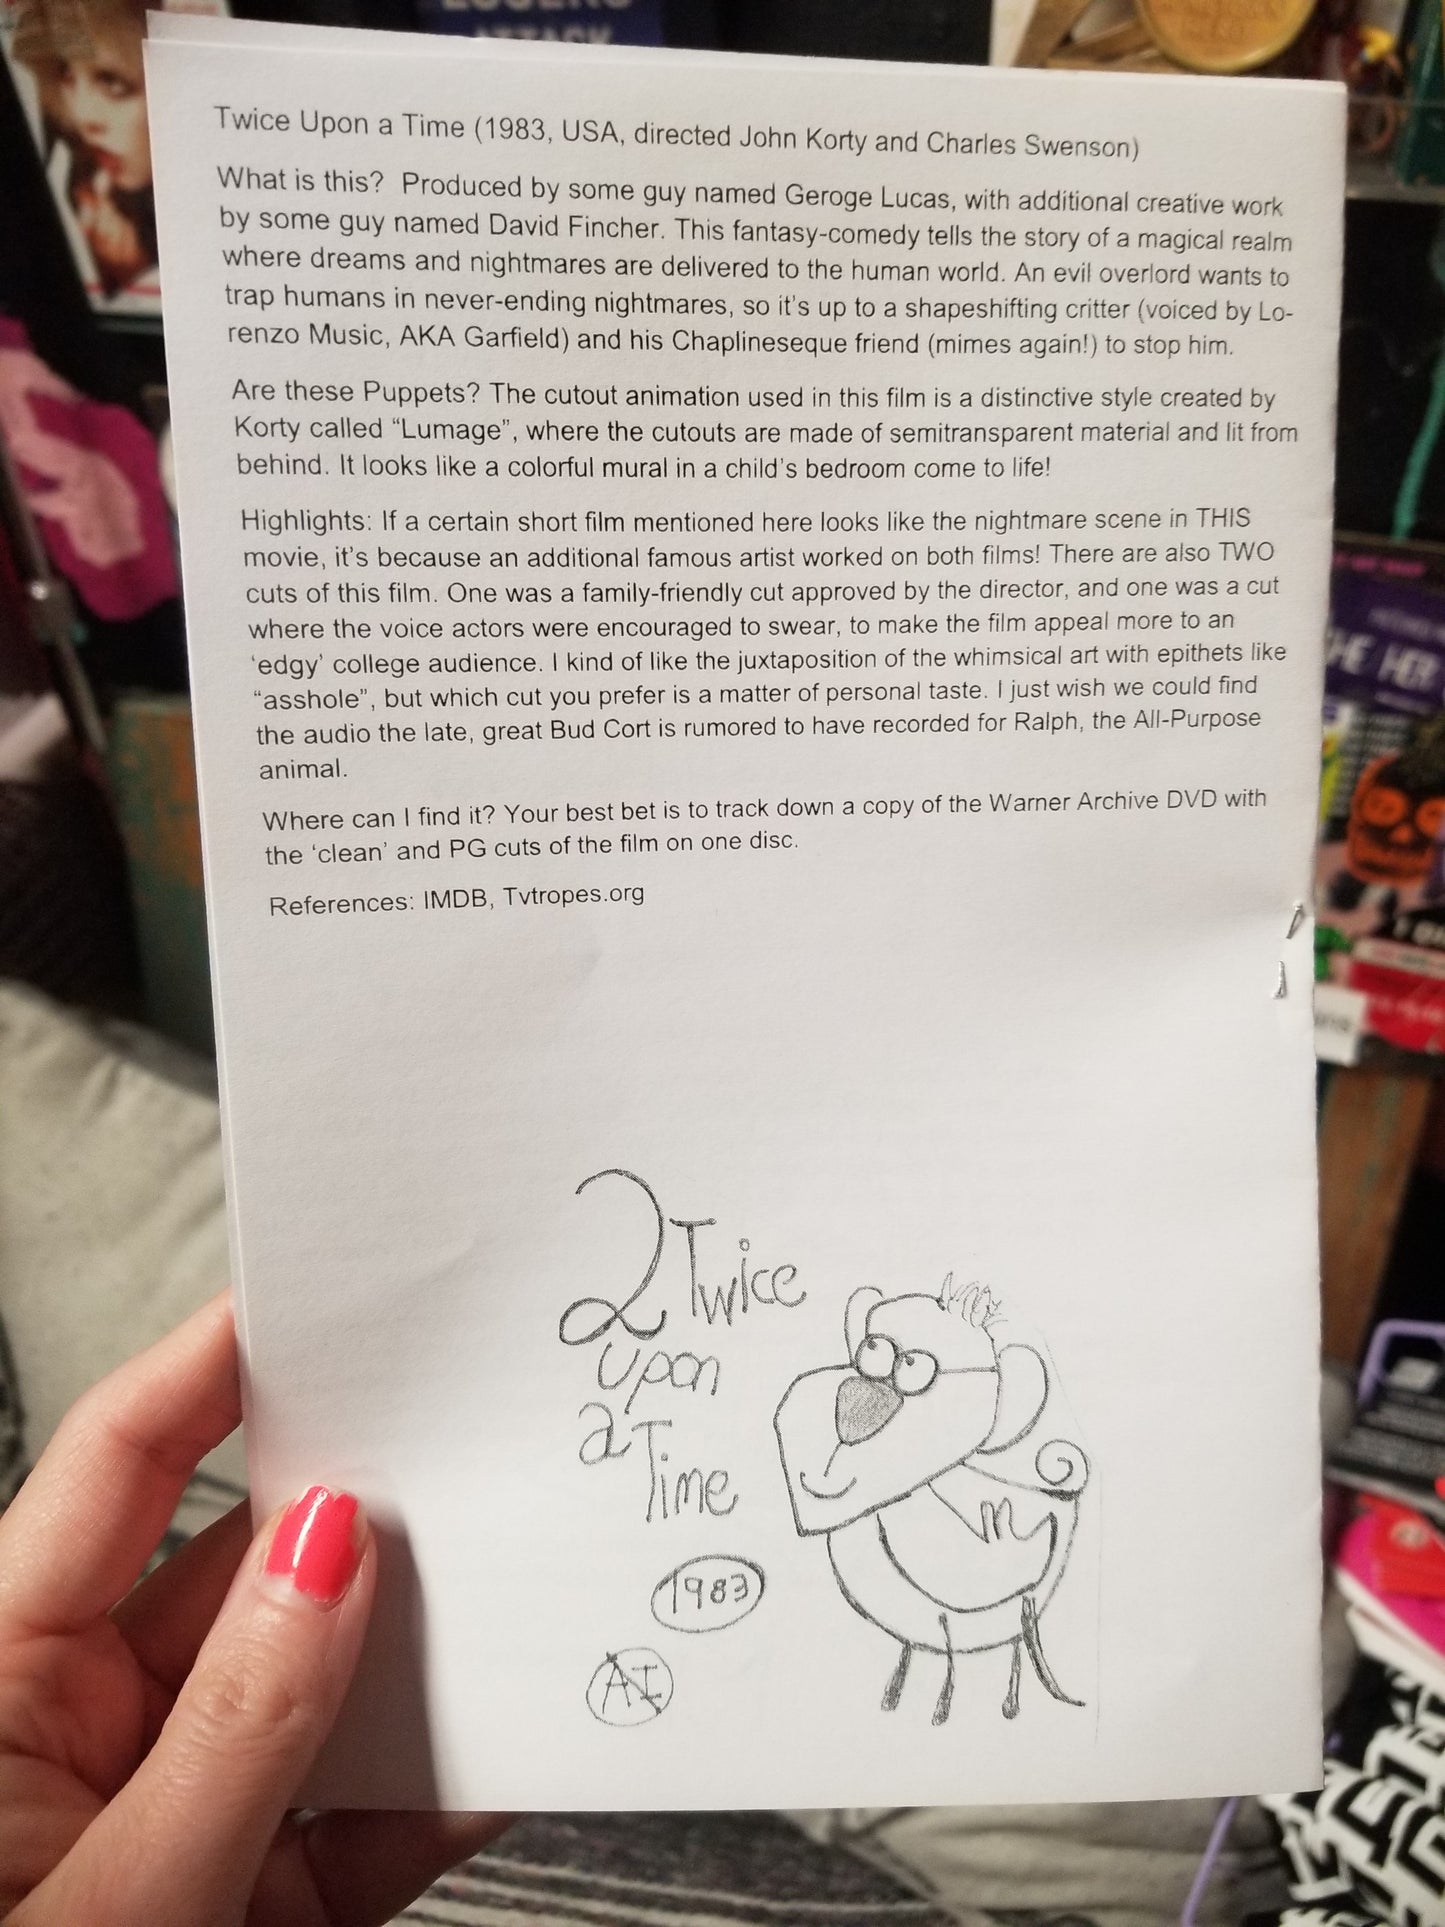 LOSERS
ATTACK
Twice Upon a Time (1983, USA, directed John Korty and Charles Swenson)
What is this?  Produced by some guy named Geroge Lucas, with additional creative work
by some guy named David Fincher. This fantasy-comedy tells the story of a magical realm
where dreams and nightmares are delivered to the human world. An evil overlord wants to
trap humans in never-ending nightmares, so it's up to a shapeshifting critter (voiced by Lo-
renzo Music, AKA Garfield) and his Chaplineseque friend (mimes again!) to stop him.
Are these Puppets? The cutout animation used in this film is a distinctive style created by
Korty called “Lumage”, where the cutouts are made of semitransparent material and lit from
behind. It looks like a colorful mural in a child's bedroom come to life!
Highlights: If a certain short film mentioned here looks like the nightmare scene in THIS
movie, it's because an additional famous artist worked on both films! There are also TWO
cuts of this film. One was a family-friendly cut approved by the director, and one was a cut
where the voice actors were encouraged to swear, to make the film appeal more to an
‘edgy’ college audience. I kind of like the juxtaposition of the whimsical art with epithets like
“asshole”, but which cut you prefer is a matter of personal taste. I just wish we could find
the audio the late, great Bud Cort is rumored to have recorded for Ralph, the All-Purpose
animal.
Where can I find it? Your best bet is to track down a copy of the Warner Archive DVD with
the ‘clean’ and PG cuts of the film on one disc.
References: IMDB, Tvtropes.org
2 Twice
upon
a Time
1983
AI
HE HER